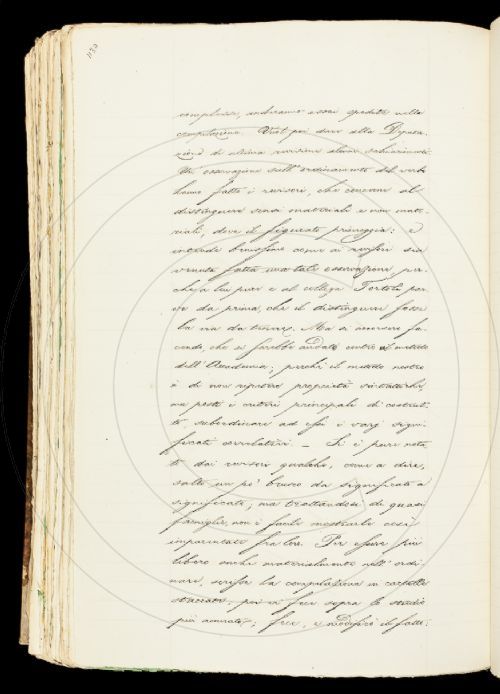 1139
complesse, andranno assai spedite nella
compilazione. Vuol poi dare alla Deputa-
zione di ultima revisione alcuni schiarimenti.
Un osservazione sull'ordinamento del verbo
hanno fatto i revisori, che conveniva al
distinguere sensi materiali e non mate-
riali, dove il figurato primeggia: e
intende benissimo come ai revisori sia
venuta fatta una tale osservazione, per-
chè a lui pure e al collega Tortoli par-
ve da prima, che il distinguere fosse
la via da tenersi. Ma si accorsero fa-
cendo, che si sarebbe andato contro al metodo
dell'Accademia; perchè il metodo nostro
è di non ripetere proprietà
ma posti i criteri principali di costrut-
to, subordinare ad essi i varj signi-
ficati correlativi. — Si è pure nota-
to dai revisori qualche, come a dire,
salto un po' brusco da significato a
significato; ma trattandosi di quasi
famiglie, non è facile mostrarle così
imparentate fra loro. Per essere più
libero anche materialmente nell'ordi-
nare, scrisse la compilazione in cartelle
staccate; poi vi fece sopra lo studio
più accurato; fece, e modificò il fatto: